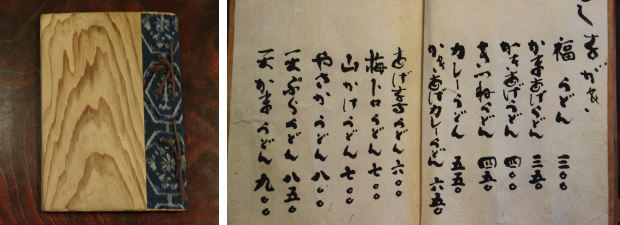 しながき
福うどん 三〇〇
かまあげうどん 三五〇
かきあげうどん 四〇〇
きつねうどん 四五〇
カレーうどん 五五〇
かきあげカレーうどん 六五〇
うどん 六〇〇
梅トロうどん 七〇〇
山かけうどん 七〇〇
やさかうどん 八〇〇
天ぷらうどん 八五〇
天かまうどん 九〇〇